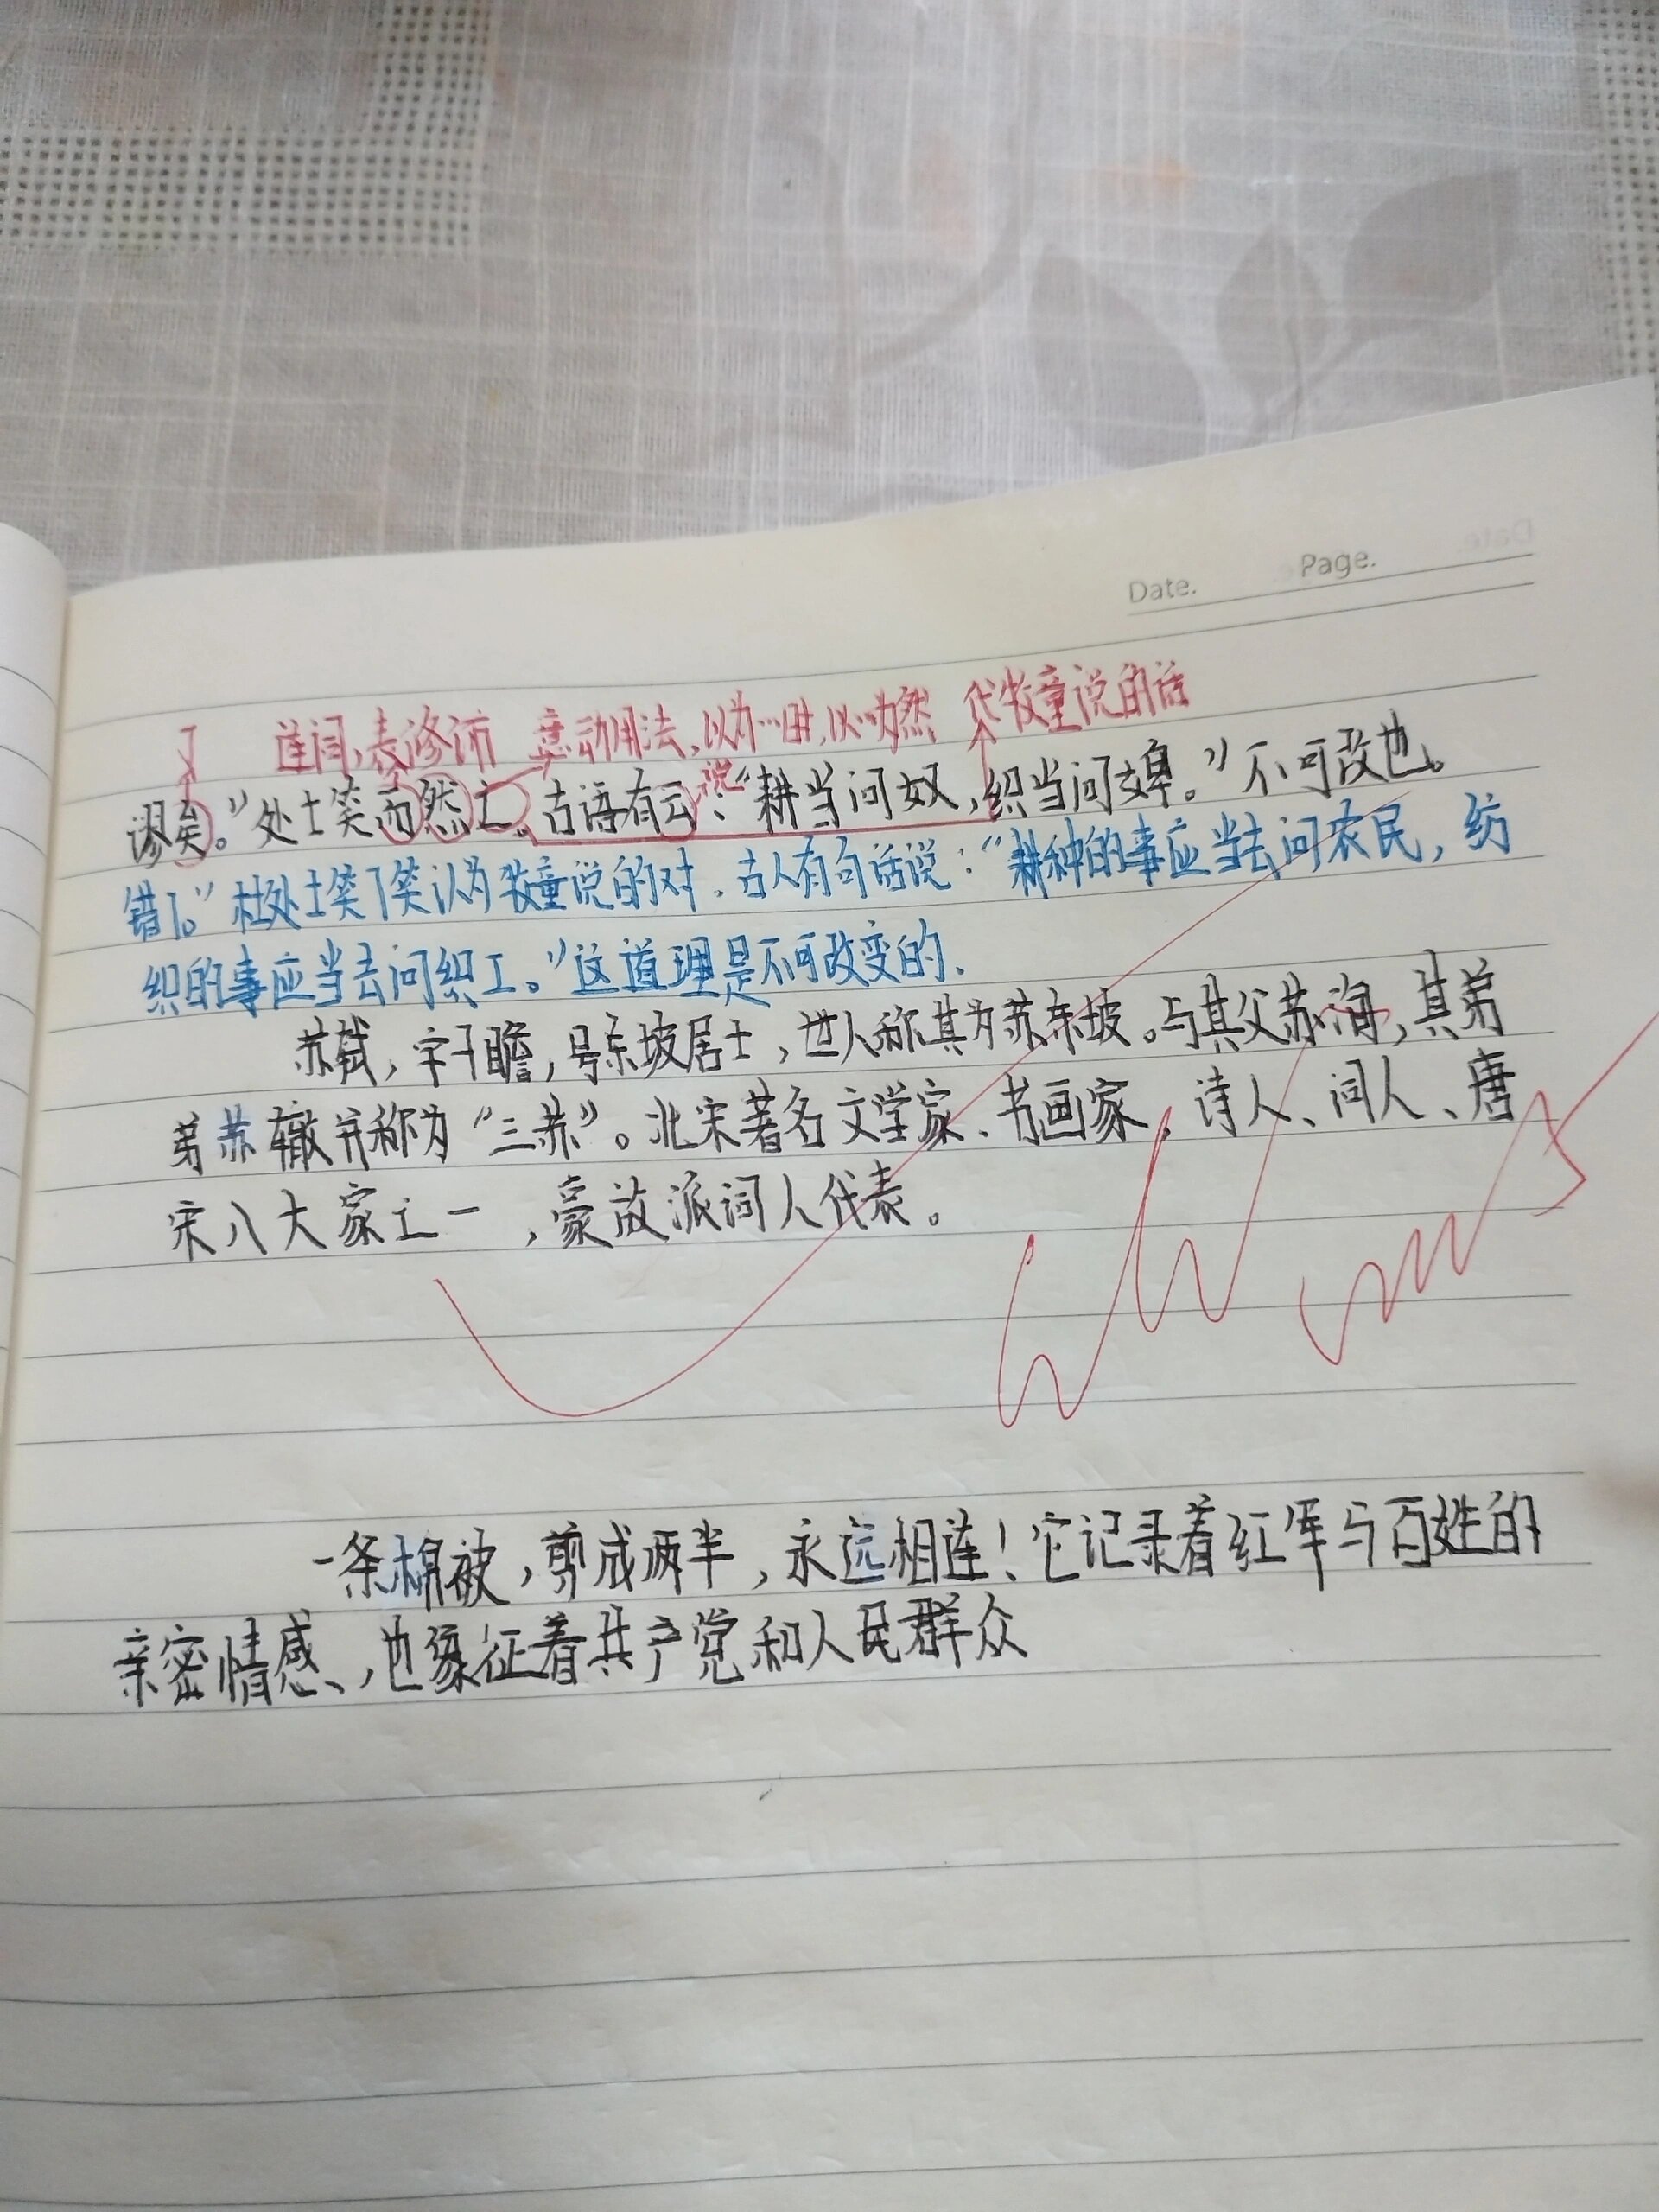 Date. Page.
了 连词,表修饰 意动用法,以为…对,以…为然 代牧童说的话
谬矣。”处士笑而然之。古语有云:说“耕当问奴,织当问婢。”不可改也。
错了。”杜处士笑了笑认为牧童说的对。古人有句话说:“耕种的事应当去问农民,纺
织的事应当去问织工。”这道理是不可改变的.
苏轼,字子瞻,号东坡居士,世人称其为苏东坡。与其父苏洵,其弟
弟苏辙并称为“三苏”。北宋著名文学家、书画家,诗人、词人、唐
宋八大家之一,豪放派词人代表。
一条棉被,剪成两半,永远相连!它记录着红军与百姓的
亲密情感、,也像征着共产党和人民群众